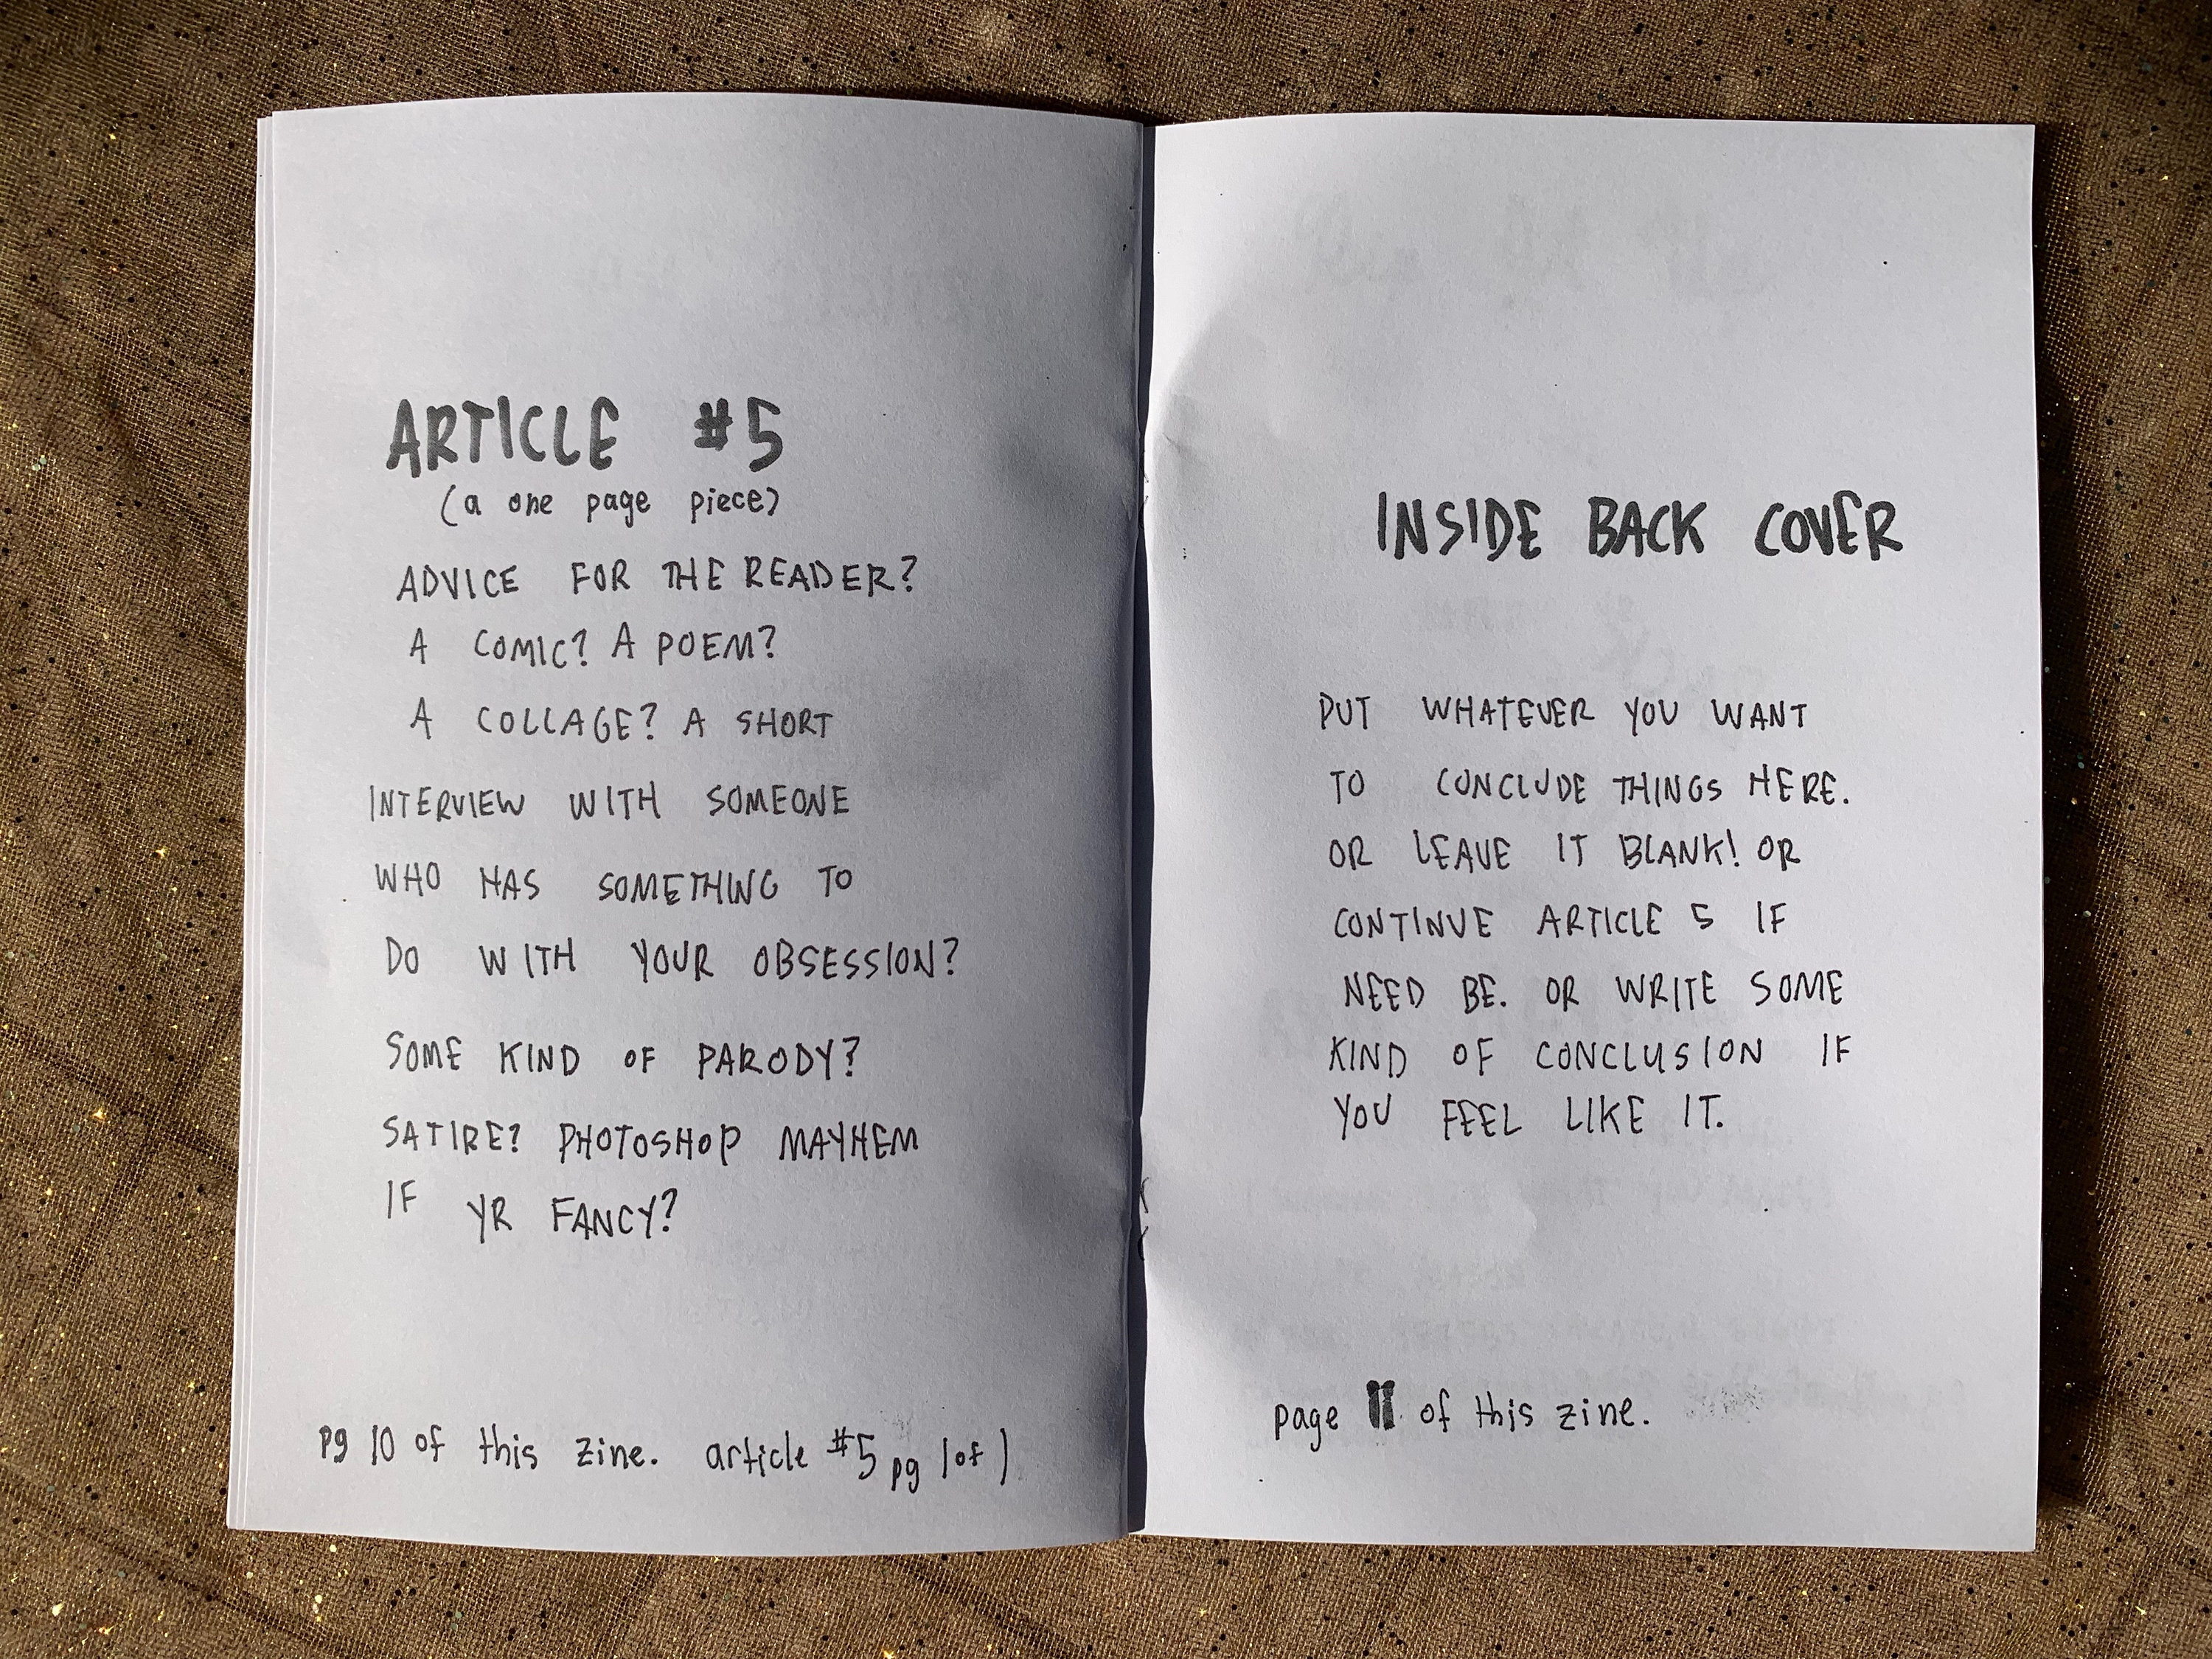 ARTICLE #5
(a one page piece)
ADVICE FOR THE READER?
A COMIC? A POEM?
A COLLAGE? A SHORT
INTERVIEW WITH SOMEONE
WHO HAS SOMETHING TO
DO WITH YOUR OBSESSION?
SOME KIND OF PARODY?
SATIRE? PHOTOSHOP MAYHEM
IF YR FANCY?
pg 10 of this zine. article #5 pg 1 of 1
INSIDE BACK COVER
PUT WHATEVER YOU WANT
TO CONCLUDE THINGS HERE.
OR LEAVE IT BLANK! OR
CONTINUE ARTICLE 5 IF
NEED BE. OR WRITE SOME
KIND OF CONCLUSION IF
YOU FEEL LIKE IT.
page 11 of this zine.